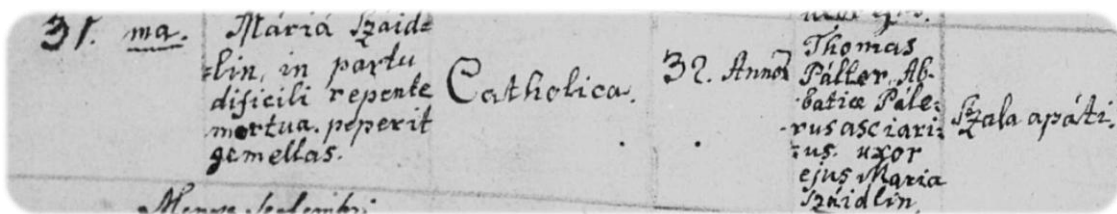 31. ma.
Máriá Szaid=
=lin, in partu
dificili repente
mortua. peperit
gemellas.
Catholica.
32. Annor̃
Thomas
Páller, Ab-
batiæ Pále=
rus asciari=
=us. uxor
ejus Maria
Száidlin,
Szala apáti.